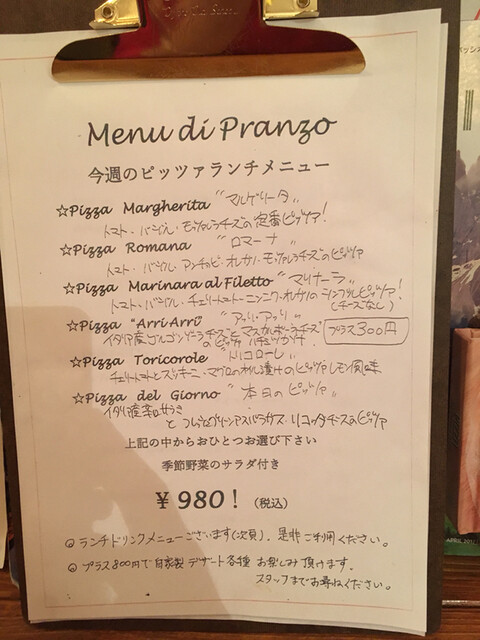 Menu di Pranzo
今週のピッツァランチメニュー
☆Pizza Margherita "マルゲリータ"
トマト・バジル・モッツァレラチーズの定番ピッツァ!
☆Pizza Romana "ロマーナ"
トマト・バジル・アンチョビ・オレガノ・モッツァレラチーズのピッツァ
☆Pizza Marinara al Filetto "マリナーラ"
トマト・バジル・チェリートマト・ニンニク・オレガノのシンプルピッツァ!
(チーズなし)
☆Pizza "Arri Arri" "アッリ・アッリ"
イタリア産ゴルゴンゾーラチーズとマスカルポーネチーズ
のピッツァ ハチミツがけ
プラス300円
☆Pizza Toricorole "トリコローレ"
チェリートマトとズッキーニ・マグロのオイル漬けのピッツァ レモン風味
☆Pizza del Giorno "本日のピッツァ"
イタリア産
と グリーンアスパラガス・リコッタチーズのピッツァ
上記の中からおひとつお選び下さい
季節野菜のサラダ付き
¥ 980! (税込)
◎ ランチドリンクメニューございます(次頁)。是非ご利用ください。
◎ プラス800円で自家製デザート各種お楽しみ頂けます。
スタッフまでお尋ねください。